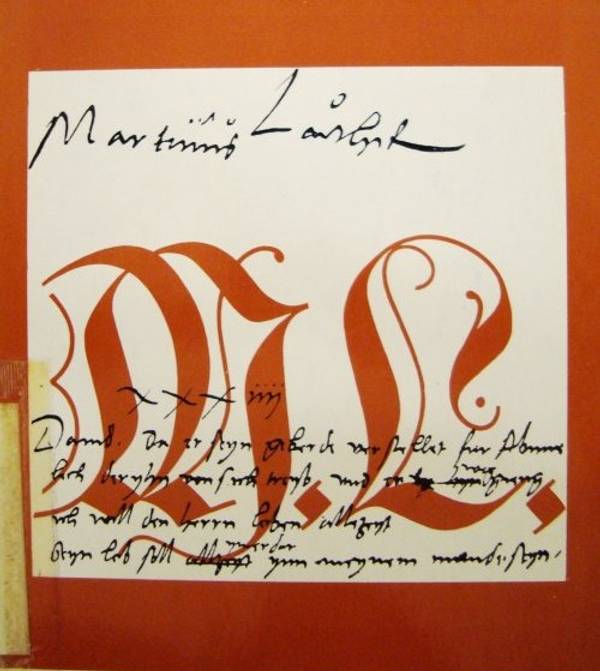 Martinus Luther
M. L.
XXXiiii
Dauid. Da er seyn geberde verstellet fur Abime
lech der yhn von sich treyb und er weg gieng
ich will den herrn loben allezeyt
ymerdar
Seyn lob soll allzeyt ynn meynem munde seyn.